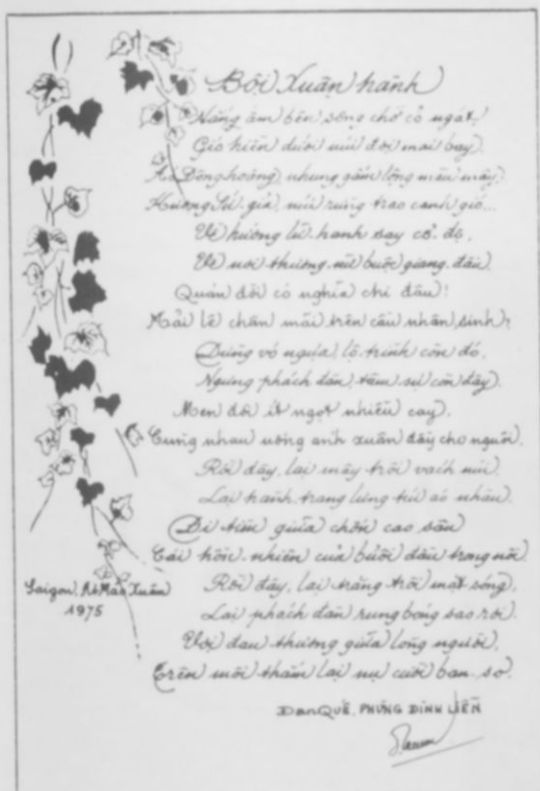 Bôi Xuân hành
Nắng ấm bên sông chở cỏ ngát,
Gió hiền dưới núi đôi mai bay.
Áo Đông hoàng, nhung gấm lộng màu mây,
Hương Sứ giả, núi rừng trao canh gió...
Về hướng lữ hành say cổ độ,
Về nơi thương nữ buộc giang đầu.
Quán đời có nghĩa chi đâu!
Mải lê chân mãi trên cầu nhân sinh,
Dừng vó ngựa, lộ trình còn đó,
Ngưng phách đàn, tâm sự còn đây.
Men đời ít ngọt nhiều cay,
Cùng nhau uống anh xuân đây cho người.
Rồi đây, lại mây trôi vách núi.
Lại hành trang lưng túi áo nhàu.
Đi tìm giữa chốn cao sâu
Cái hồn nhiên của buổi đầu trong nôi.
Rồi đây, lại trăng trôi mặt sóng,
Lại phách đàn rung bóng sao rơi.
Với đau thương giữa lòng người,
Trên môi thắm lại nụ cười ban sơ.
Saigon, Ất Mão Xuân
1975
Đan Quế, PHÙNG ĐÌNH LIÊN